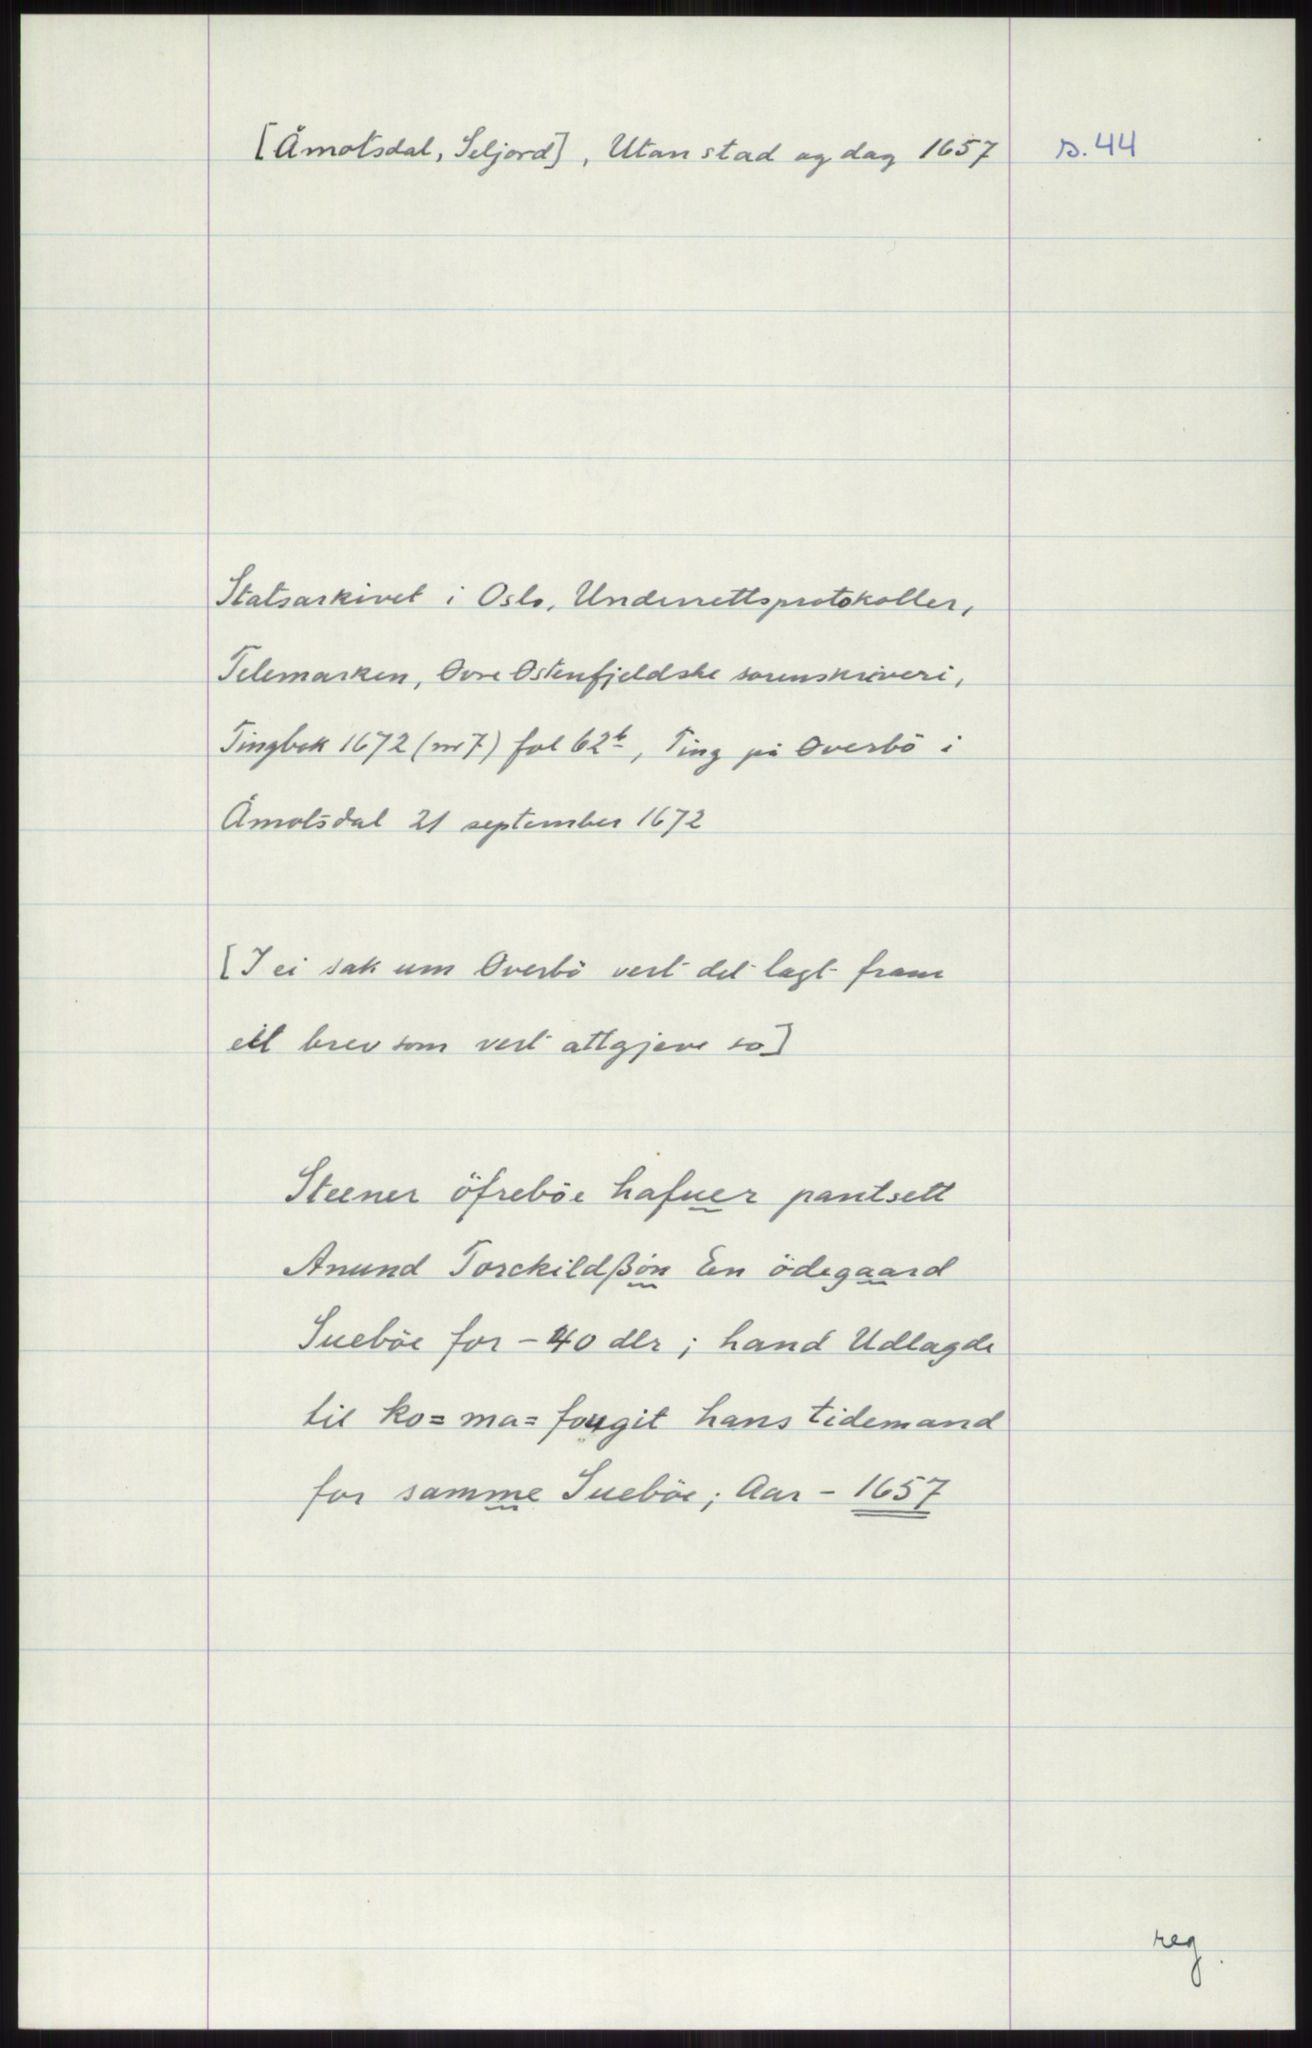 [Åmotsdal, Seljord], Utan stad og dag 1657 s. 44
Statsarkivet i Oslo, Underrettsprotokoller,
Telemarken, Øvre Østenfjeldske sorenskriveri,
Tingbok 1672 (nr 7) fol 62b, Ting på Øverbö i
Åmotsdal 21 september 1672
[I ei sak um Øverbö vert det lagt fram
eit brev som vert attgjeve so]
Steener öfreböe hafuer pantsett
Anund Torckildßön En ödegaard
Sueböe for - 40 dlr ; hand Udlagde
til ko= ma= fougit hans tidemand
for samme Sueböe; Aar - 1657
reg.